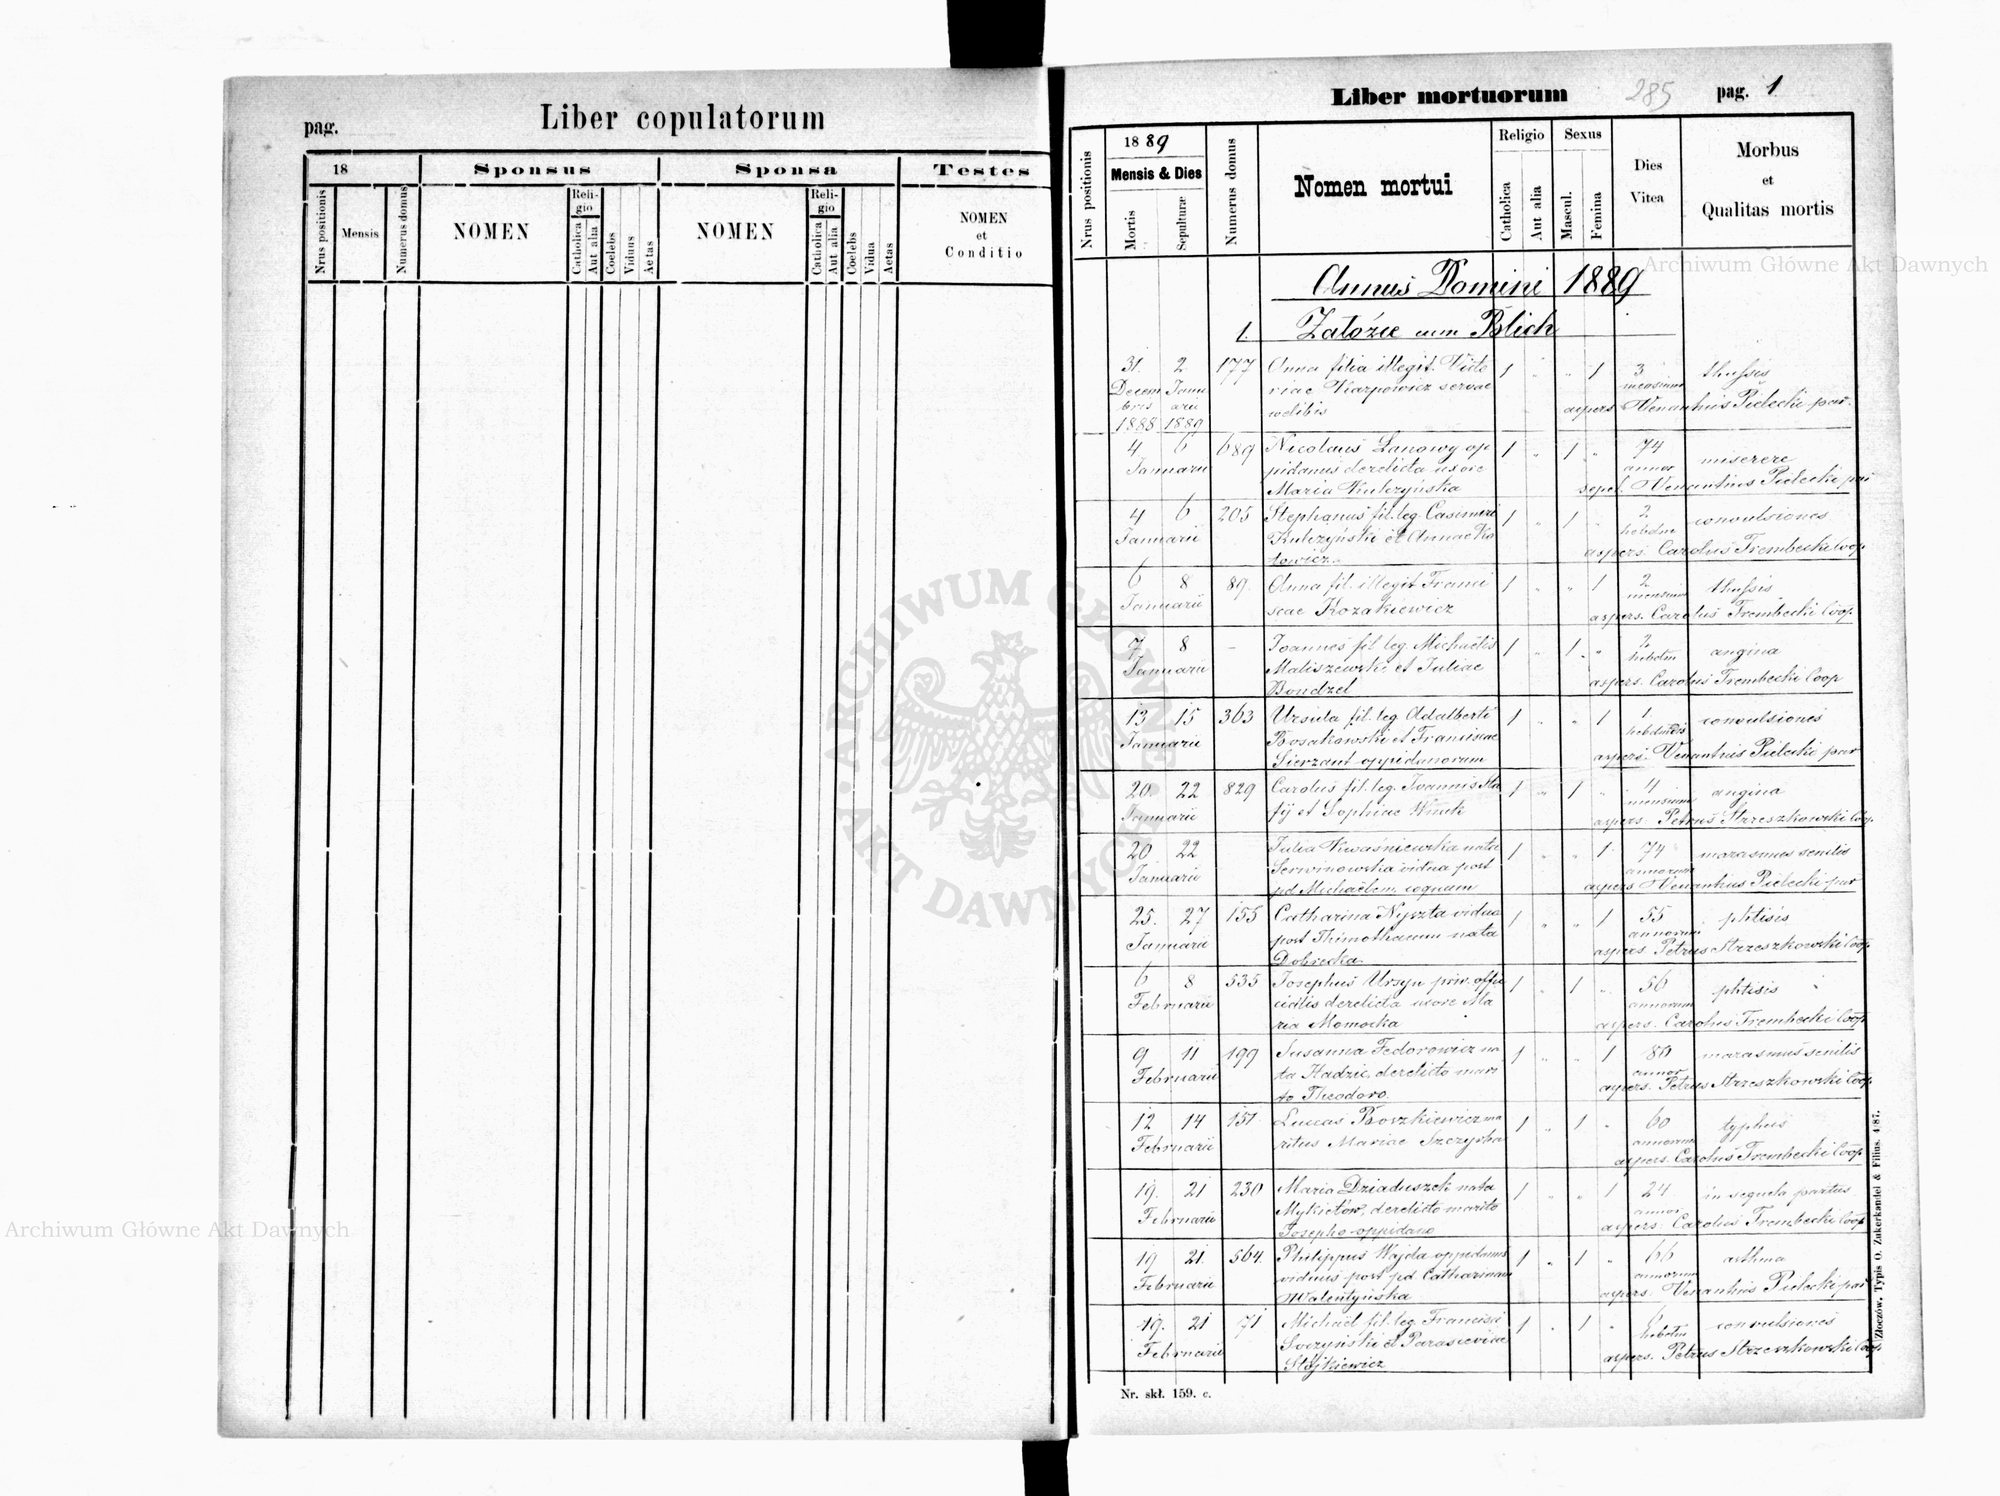 Liber copulatorum
pag.
18
Sponsus
Sponsa
Testes
Nrus positionis
Mensis
Numerus domus
NOMEN
Religio
Catholica
Aut alia
Coelebs
Viduus
Aetas
NOMEN
Religio
Catholica
Aut alia
Coelebs
Vidua
Aetas
NOMEN
et
Conditio
Liber mortuorum
285
pag. 1
Nrus positionis
1889
Mensis & Dies
Mortis
Sepulturæ
Numerus domus
Nomen mortui
Religio
Catholica
Aut alia
Sexus
Mascul.
Femina
Dies
Vitea
Morbus
et
Qualitas mortis
Annus Domini 1889
1. Załoźce cum Blich
31. 2 177 Anna filia illegit. Victo 1 " " 1 3
Decem Janu riae Karpowicz servae mensium
bris arii aspers. Venantius Pielecki par.
1888 1889
4 6 689 Nicolaus Lanowy op 1 " 1 " 74 miserere
Januarii pidanus derelicta uxore annor
Maria Kulczyńska sepel. Venantius Pielecki par
4 6 205 Stephanus fil. leg. Casimiri 1 " 1 " 2 convulsiones
Januarii Kulczyński et Annae Ko hebdm
towicz. aspers. Carolus Trembecki Coop
6 8 89. Anna fil. illegit Franci 1 " " 1 2
Januarii scae Kozakiewicz mensium
aspers. Carolus Trembecki Coop.
7 8 - Joannes fil. leg. Michaëlis 1 " 1 " 2 angina
Januarii Maliszewski et Juliae hebdm
Bondzel aspers. Carolus Trembecki Coop
13 15 363 Ursula fil. leg. Adalberti 1 " " 1 1 convulsiones
Januarii Bosakowski et Franciscae
Sierzant oppidanorum aspers. Venantius Pielecki par
20. 22 829 Carolus fil. leg. Joannis 1 " 1 " 4 angina
Januarii et Sophiae mensium
aspers. Petrus Strzeszkowski Coop.
20 22 Julia Kwaśniewska nata 1 " " 1 74 marasmus senilis
Januarii Serwinowska vidua post annorum
pd Michaëlem aspers. Venantius Pielecki par
25. 27 155 Catharina Nyszta vidua 1 " " 1 55 phtisis
Januarii post Thimothaeum nata annorum
Dobrzcka. aspers. Petrus Strzeszkowski Coop.
6 8 535 Josephus Ursyn priv. offi 1 " 1 " 56 phtisis
Februarii cialis derelicta uxore Ma annorum
ria Momocka aspers. Carolus Trembecki Coop
9 11 199 Susanna Fedorowicz na 1 " " 1 80 marasmus senilis
Februarii ta Hadzic, derelicto mari annor
to Theodoro. aspers. Petrus Strzeszkowski Coop
12 14 151. Lucas Boszkiewicz ma 1 " 1 " 60 typhus
Februarii ritus Mariae annorum
aspers. Carolus Trembecki Coop
19. 21 230 Maria Dziaduszek nata 1 " " 1 24 in sequela partus
Februarii Mykietów, derelicto marito annor
Josepho oppidano aspers. Carolus Trembecki Coop
19 21. 564. Philippus Wajda oppidanus 1 " 1 " 66 asthma
Februarii viduus post pd. Catharinam annorum
Walentyńska aspers. Venantius Pielecki par
19. 21 71 Michaël fil. leg. Francisci 1 " 1 " convulsiones
Februarii Soczyński et Parasceviae hebdm
Stojkiewicz aspers. Petrus Strzeszkowski Coop
Nr. skł. 159. c.
Złoczów. Typis O. Zukerkandel & Filius. 4/87.
Archiwum Główne Akt Dawnych
Archiwum Główne Akt Dawnych
ARCHIWUM GŁÓWNE AKT DAWNYCH